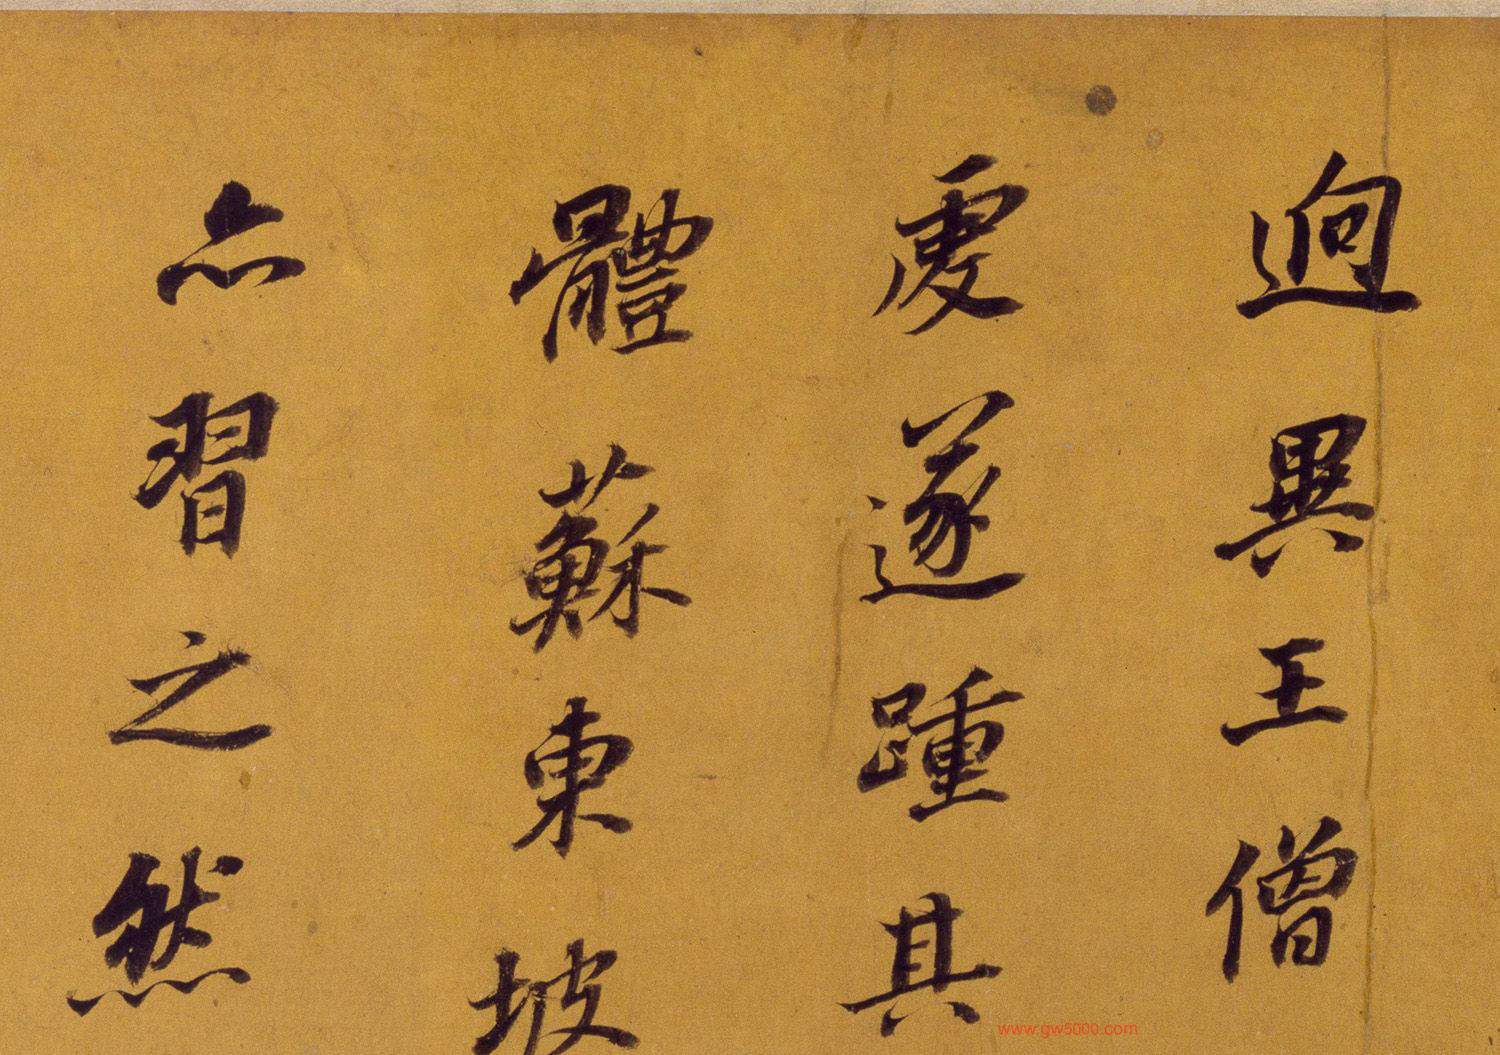 逈異王僧
虔遂踵其
體蘇東坡
亦習之然
www.gw5000.com